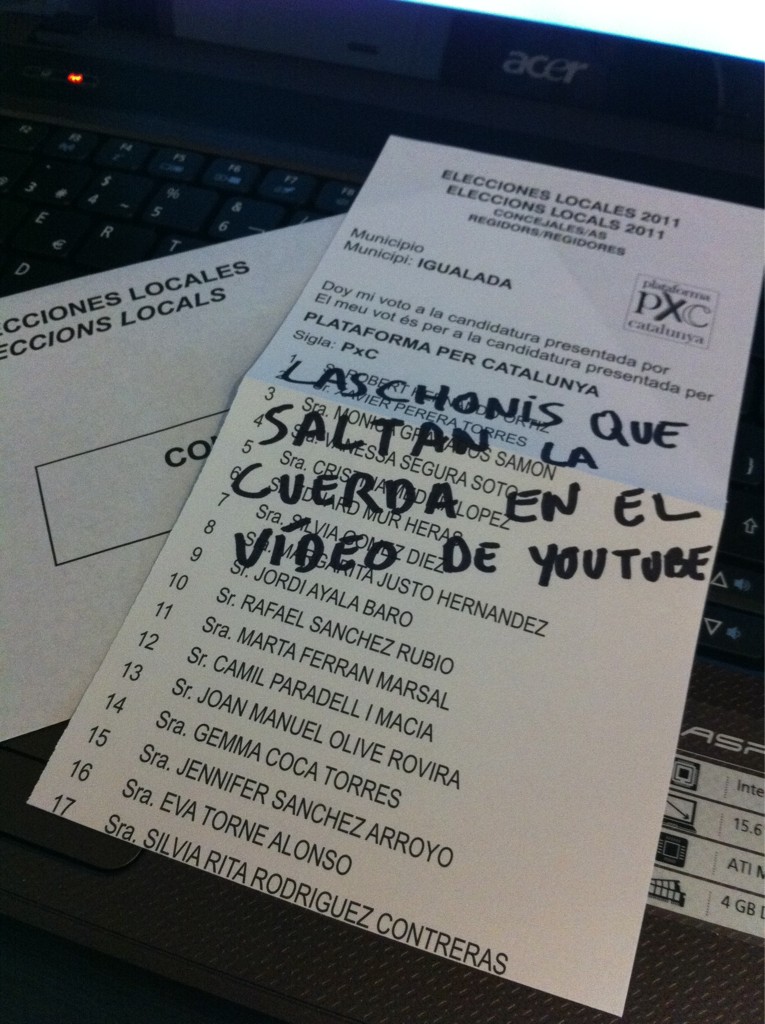 acer
ELECCIONES LOCALES 2011
ELECCIONS LOCALS 2011
CONCEJALES/AS
REGIDORS/REGIDORES
Municipio
Municipi: IGUALADA
plataforma
pxc
catalunya
Doy mi voto a la candidatura presentada por
El meu vot és per a la candidatura presentada per
PLATAFORMA PER CATALUNYA
Sigla: PxC
LAS CHONIS QUE
SALTAN LA
CUERDA EN EL
VÍDEO DE YOUTUBE
1 Sr. ROBERT
XAVIER PERERA TORRES
3 Sra. MONICA SAMON
4 VANESSA SEGURA SOTO
5 Sra. LOPEZ
6 MUR HERAS
7 Sra. SILVIA GOMEZ DIEZ
8 MARGARITA JUSTO HERNANDEZ
9 Sr. JORDI AYALA BARO
10 Sr. RAFAEL SANCHEZ RUBIO
11 Sra. MARTA FERRAN MARSAL
12 Sr. CAMIL PARADELL I MACIA
13 Sr. JOAN MANUEL OLIVE ROVIRA
14 Sra. GEMMA COCA TORRES
15 Sra. JENNIFER SANCHEZ ARROYO
16 Sra. EVA TORNE ALONSO
17 Sra. SILVIA RITA RODRIGUEZ CONTRERAS
ECCIONES LOCALES
ECCIONS LOCALS
CO
ASP
Inte
15.6
ATI M
4 GB
F3 F4 F5 F6 F7 F8
3 $ 4 ~ % 5 & 6
E € R T
D